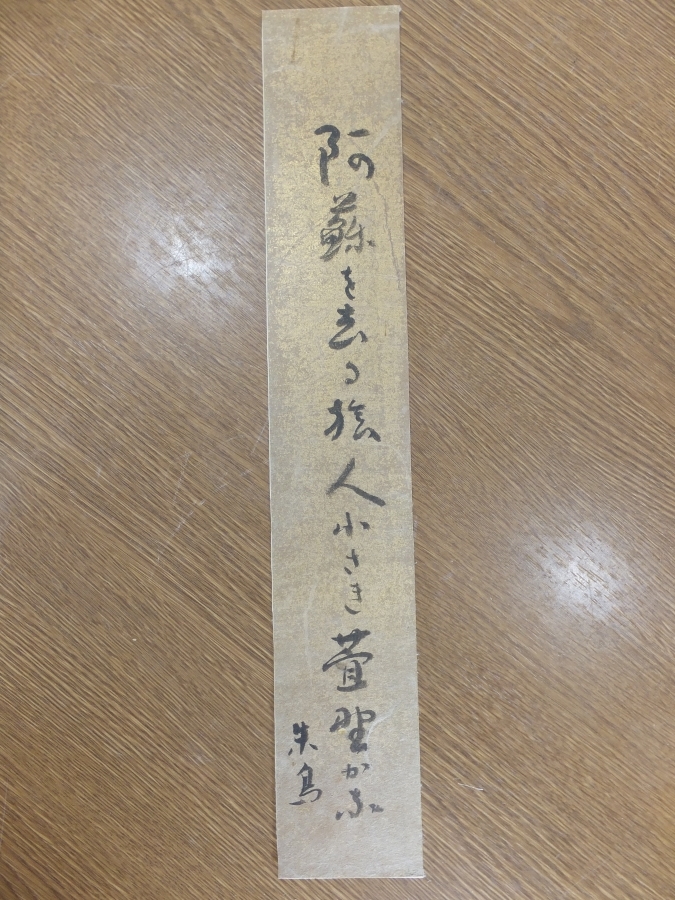 阿蘇を去る旅人小さき萱野かな
朱鳥